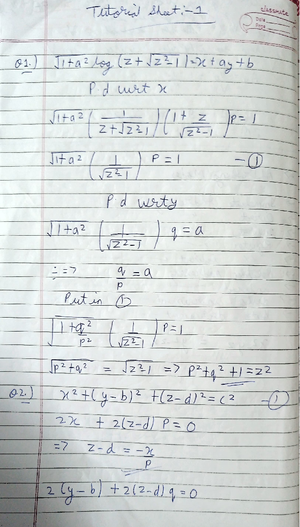 Tutorial Sheet:-1
classmate
Date
Page
Q1.) √1+a² log (z+√z²-1) = x+ay+b
P d wrt x
√1+a² (1/z+√z²-1) (1+z/√z²-1) p = 1
√1+a² (1/√z²-1) p = 1 —①
P d wrty
√1+a² (1/√z²-1) q = a
÷ => q/p = a
Put in ①
√1+q²/p² (1/√z²-1) p = 1
√p²+q² = √z²-1 => p²+q²+1=z²
Q2.) x²+(y-b)²+(z-d)²=c² —①
2x + 2(z-d) p = 0
=> z-d = -x/p
2(y-b) + 2(z-d) q = 0